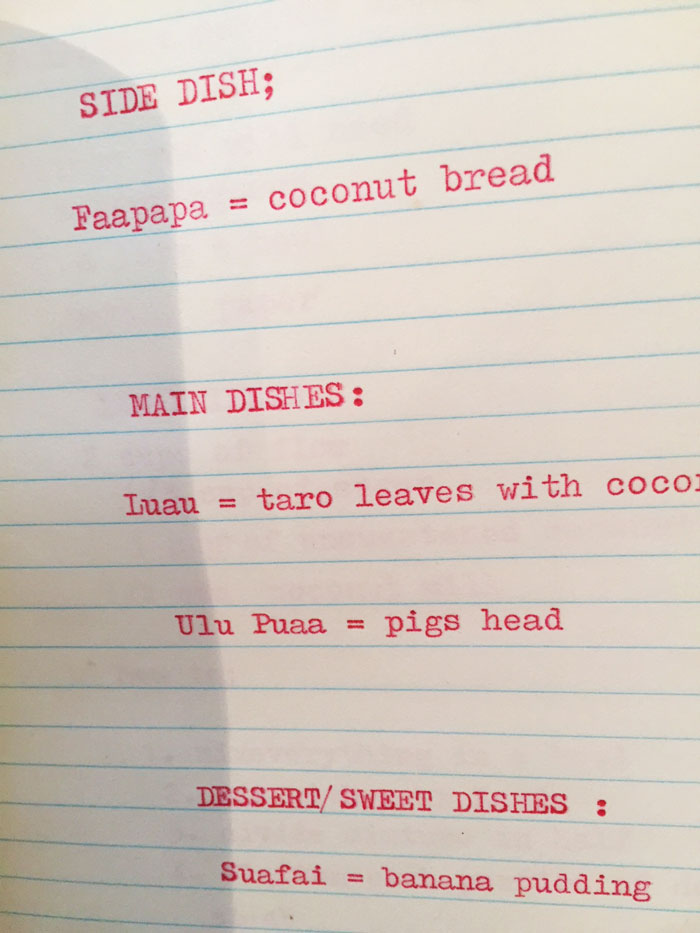 SIDE DISH;
Faapapa = coconut bread
MAIN DISHES:
Luau = taro leaves with
Ulu Puaa = pigs head
DESSERT/SWEET DISHES :
Suafai = banana pudding